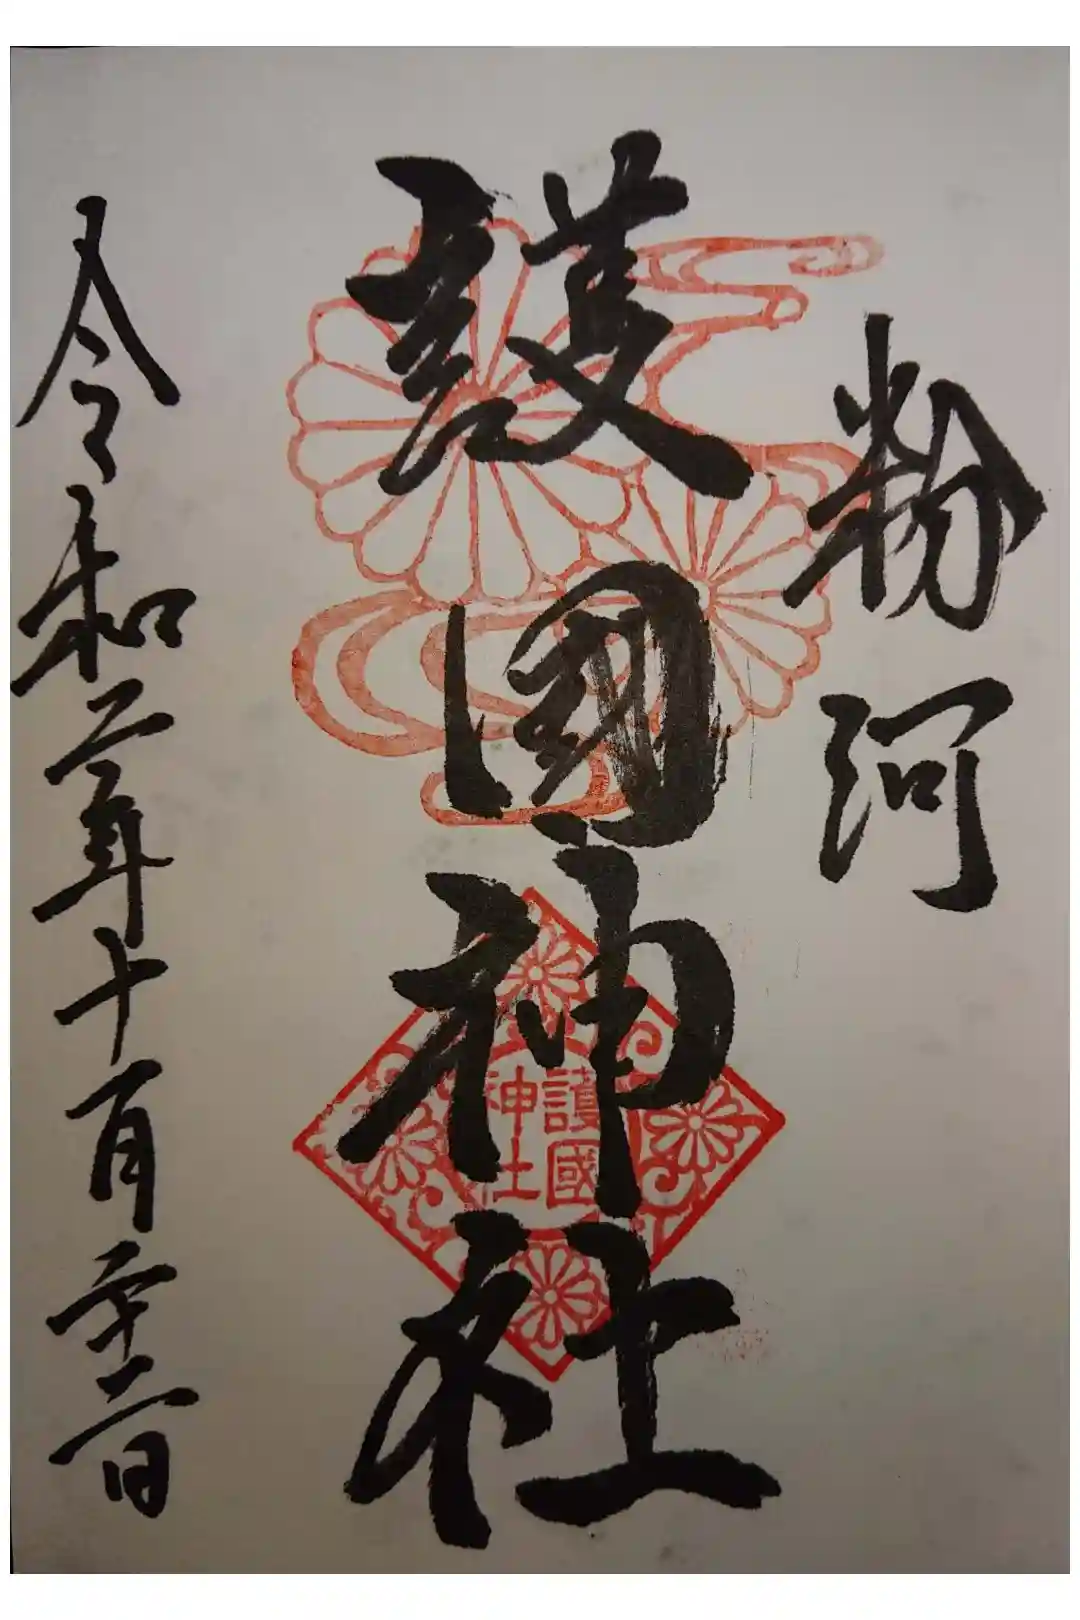 粉河
護國神社
令和二年十月二十二日
護國
神社